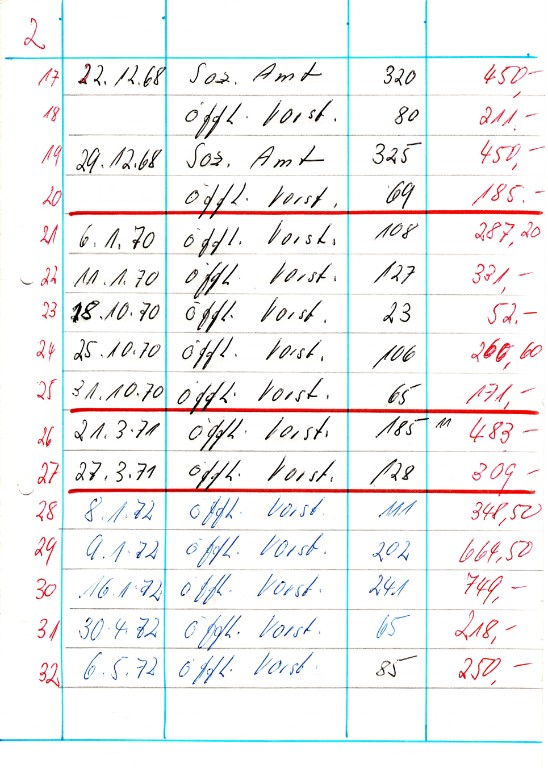 2
17 22.12.68 Soz. Amt 320 450,-
18 öffl. Vorst. 80 211.-
19 29.12.68 Soz. Amt 325 450,-
20 öffl. Vorst. 69 185.-
21 6.1.70 öffl. Vorst. 108 287,20
22 11.1.70 öffl. Vorst. 127 331,-
23 18.10.70 öffl. Vorst. 23 52.-
24 25.10.70 öffl. Vorst. 106 266,60
25 31.10.70 öffl. Vorst. 65 171,-
26 21.3.71 öffl. Vorst. 185 " 483-
27 27.3.71 öffl. Vorst. 128 309-
28 8.1.72 öffl. Vorst. 111 348,50
29 9.1.72 öffl. Vorst. 202 664,50
30 16.1.72 öffl. Vorst. 241 749,-
31 30.4.72 öffl. Vorst. 65 218,-
32 6.5.72 öffl. Vorst. 85 250,-